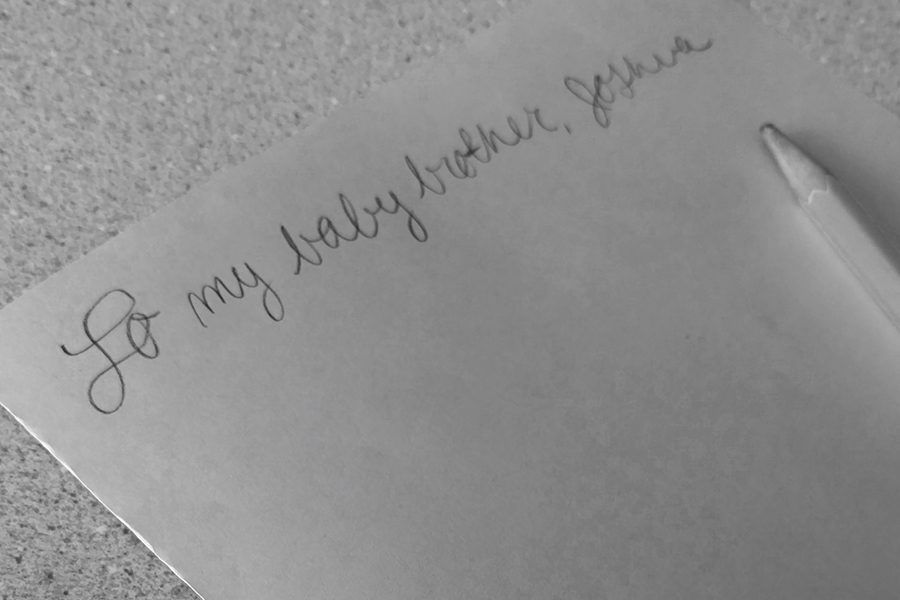 To my baby brother, Joshua